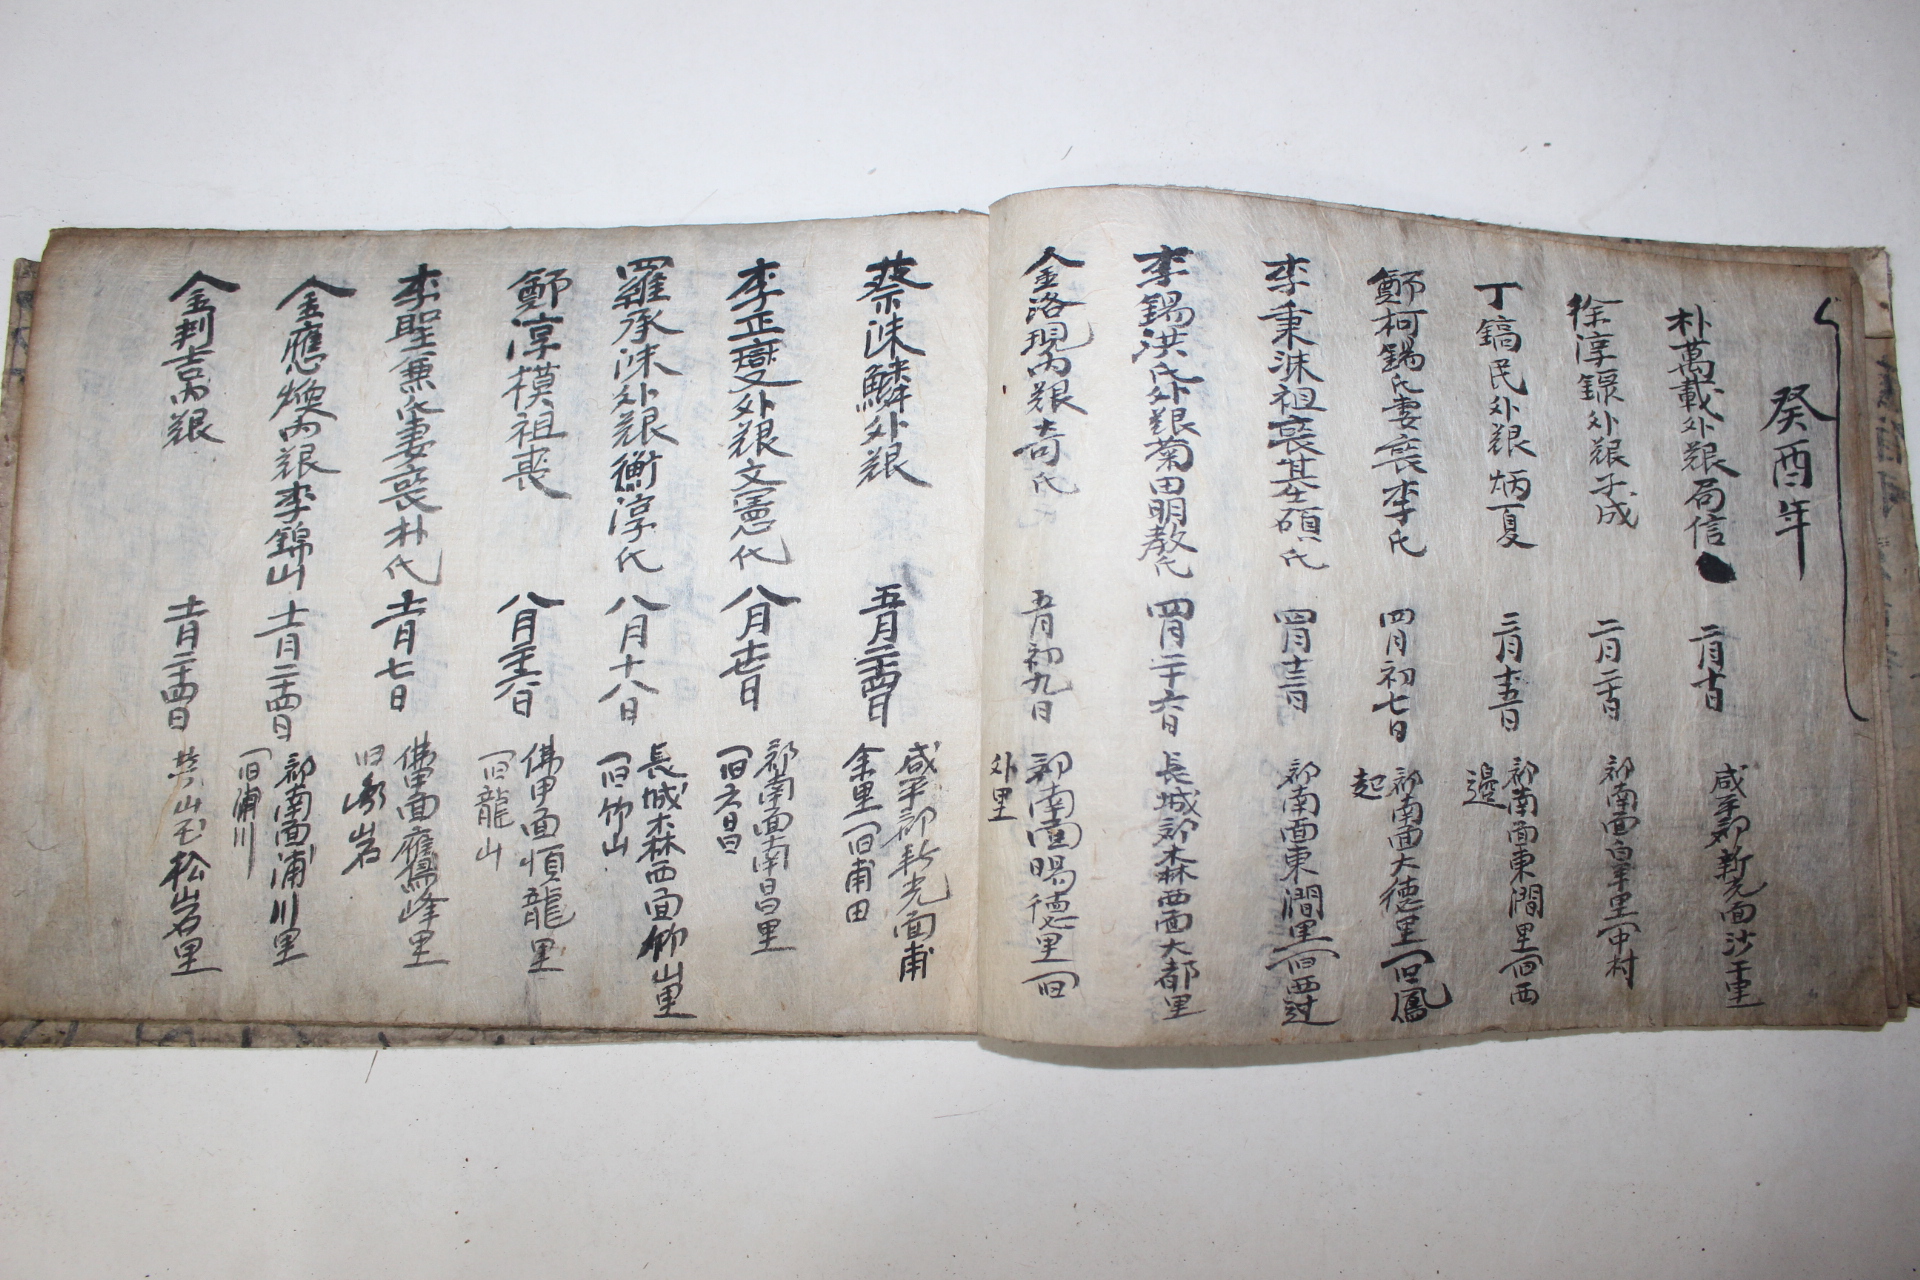 癸酉年
朴萬載外艱局信 二月十日 咸平郡新光面沙千里
徐淳錄外艱子成 二月二十日 郡南面白羊里 中村
丁鎬民外艱炳夏 三月十五日 郡南面東澗里 西
邊
鄭柯錫氏妻喪李氏 四月初七日 郡南面大德里 鳳
起
李秉洙祖喪基碩氏 四月十三日 郡南面東澗里 西边
李錫洪氏外艱菊田明教氏 四月二十六日 長城郡森西面大都里
金洛現內艱奇氏 五月初九日 郡南面賜德里
外里
蔡洙鱗外艱 五月二十四日 咸平郡新光面甫
余里 甫田
李正燮外艱文憲氏 八月十七日 郡南面南昌里
六昌
羅承洙外艱衡淳氏 八月十八日 長城森西面 山里
竹山
鄭淳模祖喪 八月二十六日 佛甲面順龍里
龍山
李聖兼氏妻喪朴氏 十一月七日 佛甲面鷹峰里
岩
金應煥內艱李錦山 十一月二十四日 郡南面浦川里
浦川
金判吉內艱 十一月二十四日 松岩里